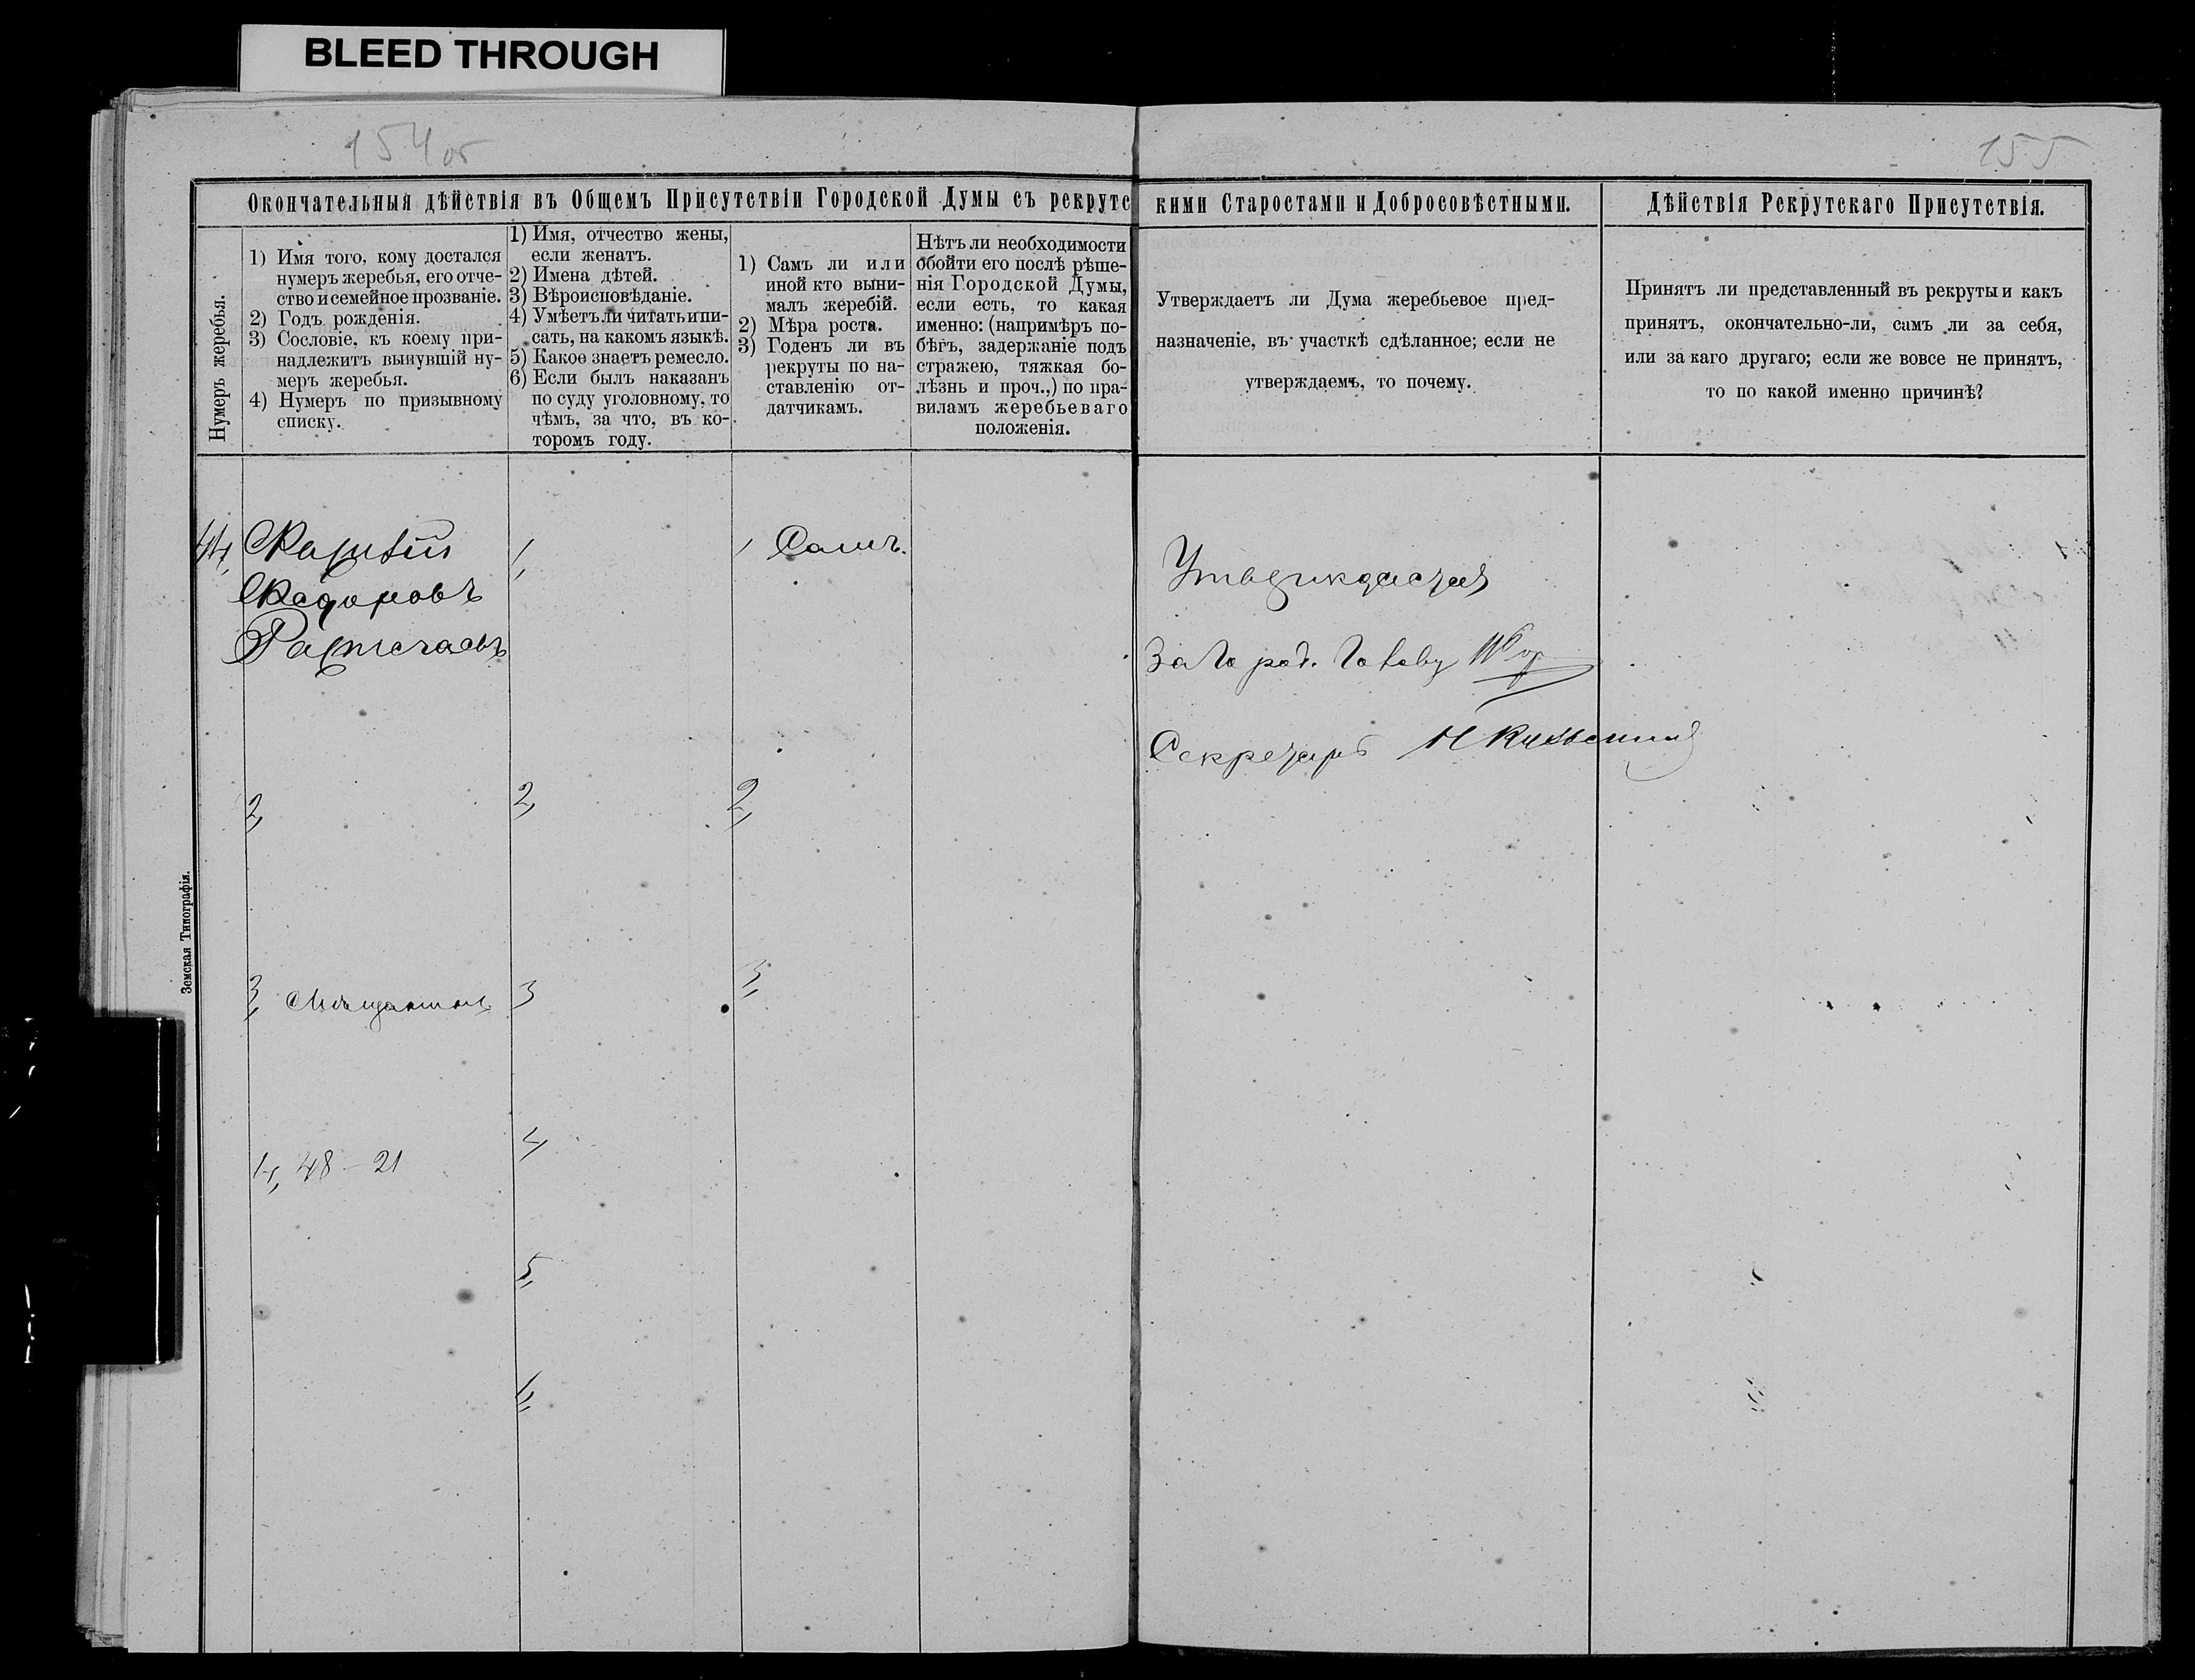 BLEED THROUGH
154 об
155
Окончательныя дѣйствія въ Общемъ Присутствіи Городской Думы съ рекрутс
кими Старостами и Добросовѣстными.
Дѣйствія Рекрутскаго Присутствія.
Нумеръ жеребья.
1) Имя того, кому достался
нумеръ жеребья, его отче-
ство и семейное прозваніе.
2) Годъ рожденія.
3) Сословіе, къ коему при-
надлежитъ вынувшій ну-
меръ жеребья.
4) Нумеръ по призывному
списку.
1) Имя, отчество жены,
если женатъ.
2) Имена дѣтей.
3) Вѣроисповѣданіе.
4) Умѣетъ ли читать и пи-
сать, на какомъ языкѣ.
5) Какое знаетъ ремесло.
6) Если былъ наказанъ
по суду уголовному, то
чѣмъ, за что, въ ко-
торомъ году.
1) Самъ ли или
иной кто выни-
малъ жеребій.
2) Мѣра роста.
3) Годенъ ли въ
рекруты по на-
ставленію от-
датчикамъ.
Нѣтъ ли необходимости
обойти его послѣ рѣше-
нія Городской Думы,
если есть, то какая
именно: (напримѣръ по-
бѣгъ, задержаніе подъ
стражею, тяжкая бо-
лѣзнь и проч.,) по пра-
виламъ жеребьеваго
положенія.
Утверждаетъ ли Дума жеребьевое пред-
назначеніе, въ участкѣ сдѣланное; если не
утверждаемъ, то почему.
Принятъ ли представленный въ рекруты и какъ
принятъ, окончательно-ли, самъ ли за себя,
или за каго другаго; если же вовсе не принятъ,
то по какой именно причинѣ?
44,
Ѳедоровъ
2,
3, Мѣщанинъ
4, 48 - 21
1,
2,
3
4,
5,
6,
1 Самъ.
2,
3,
Утверждается
За Город. Голову
Секретарь
Земская Типографія.